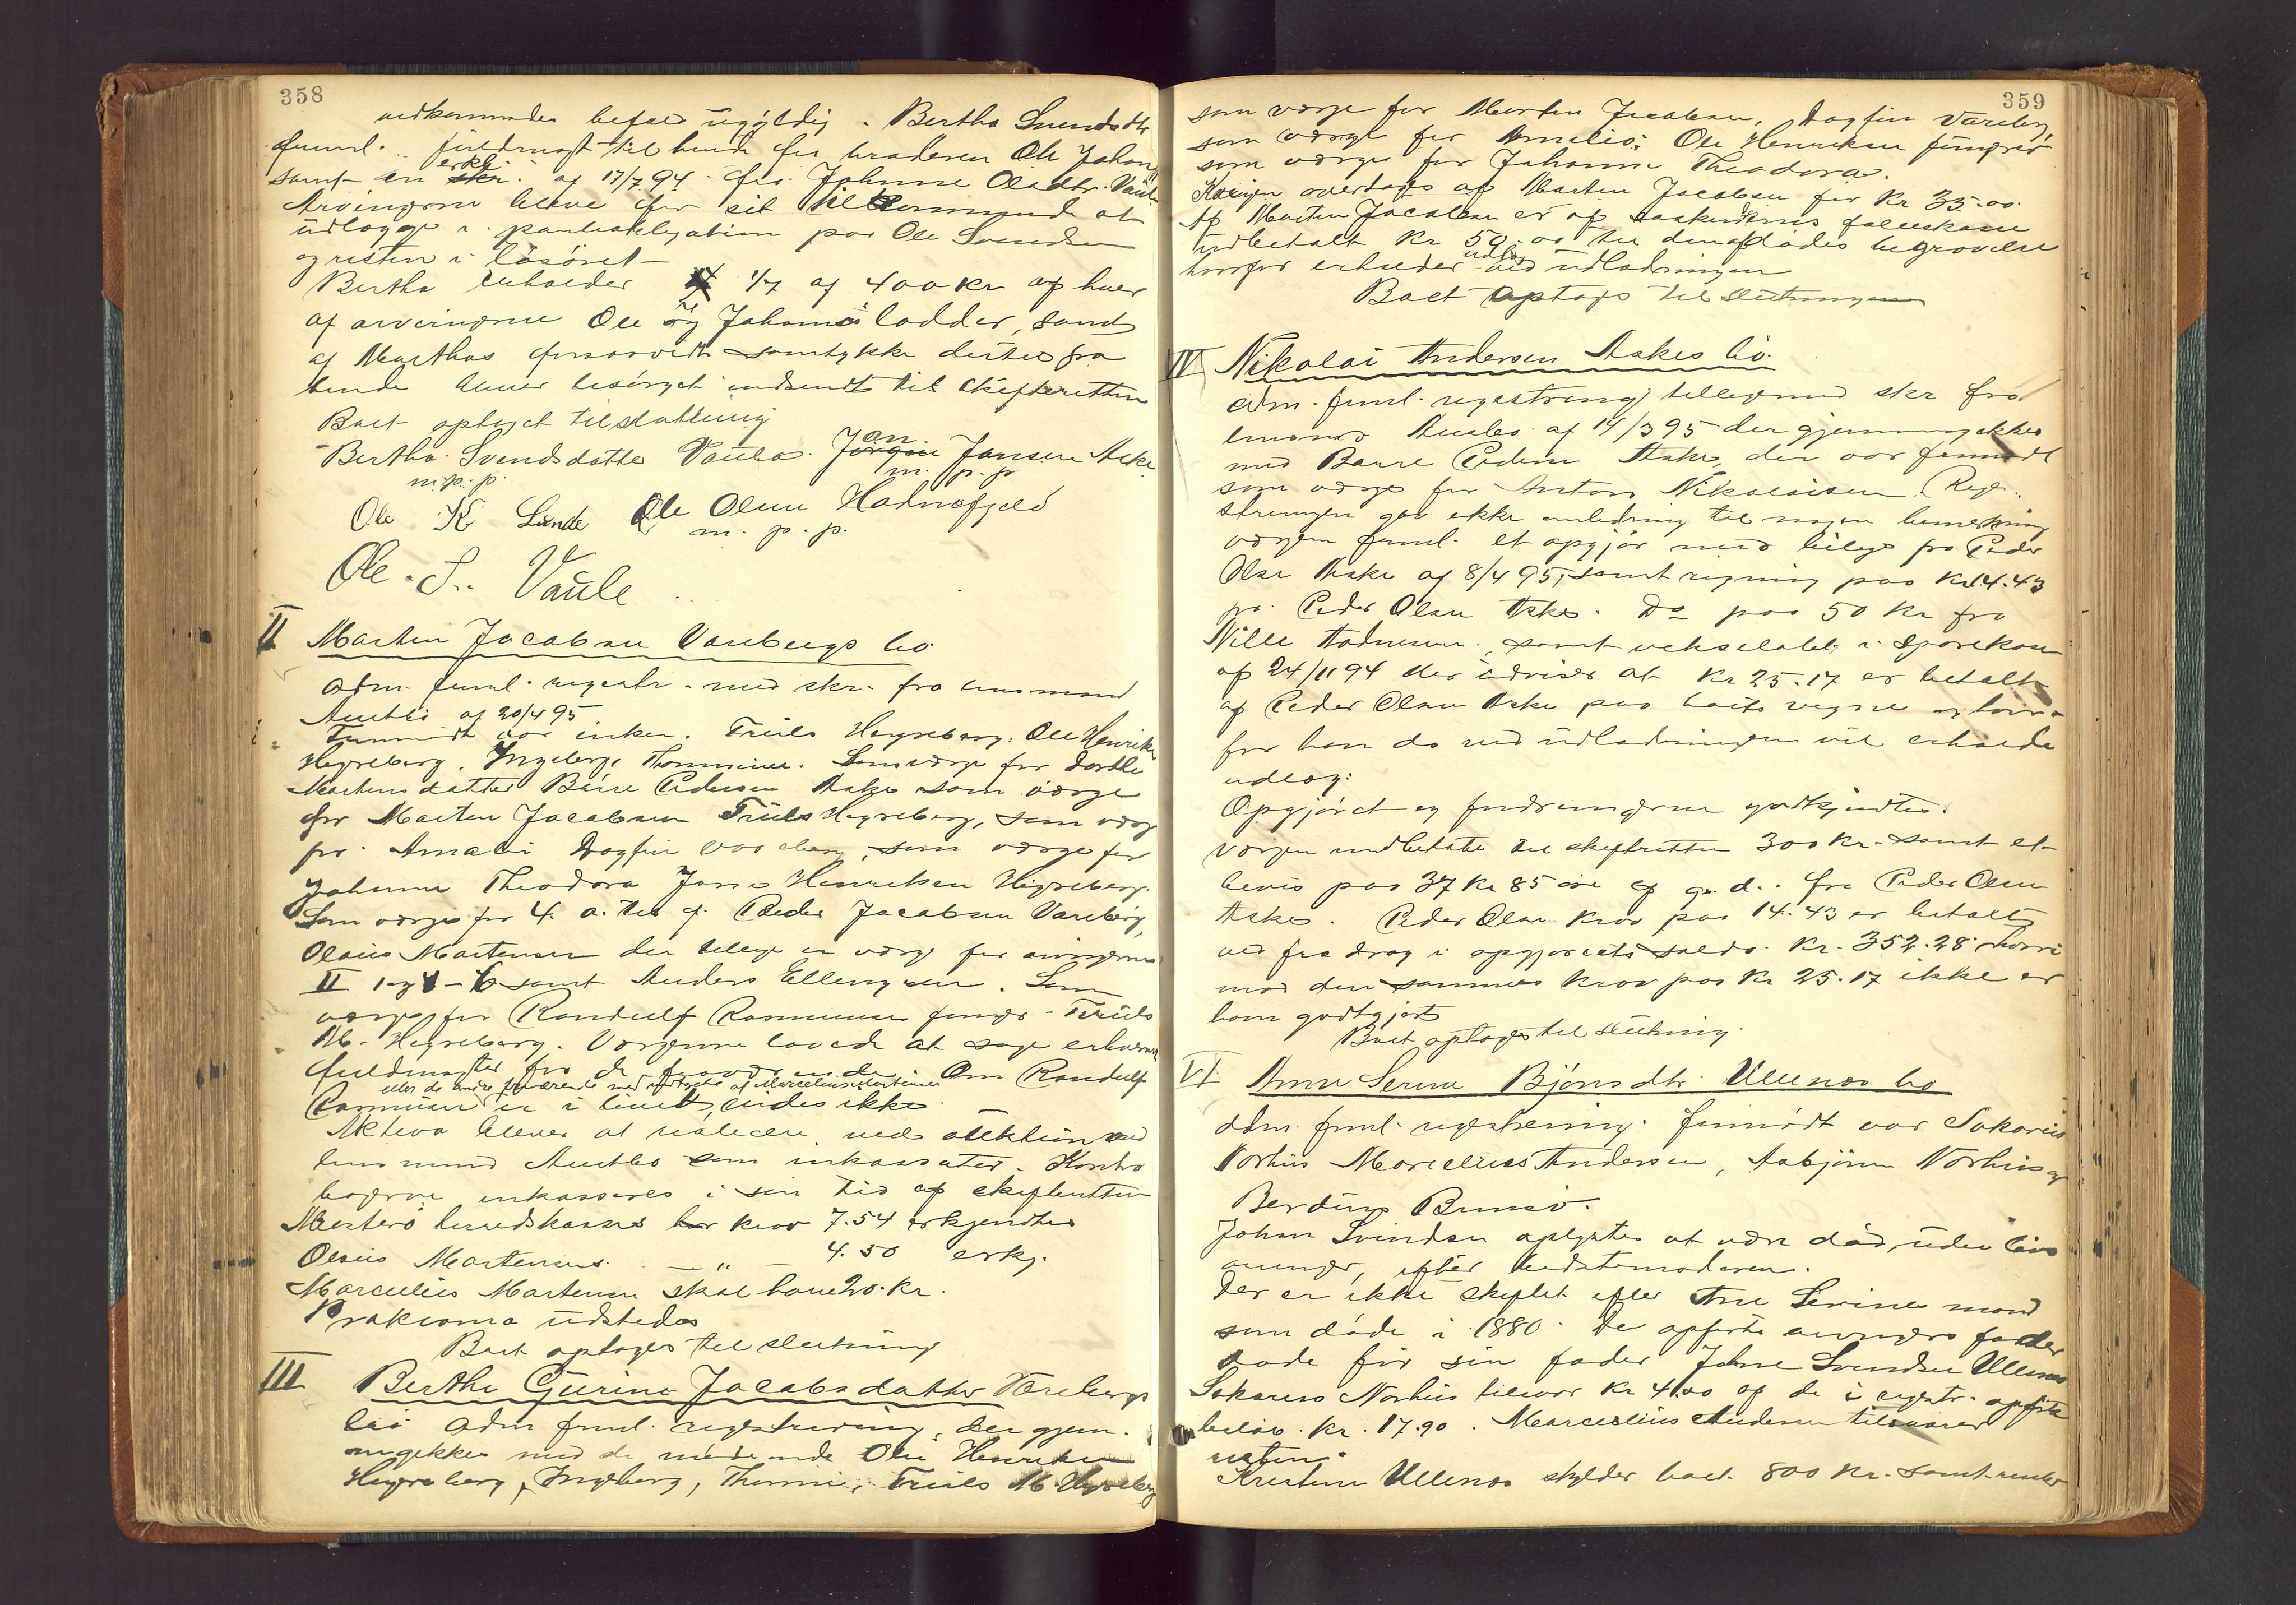 358
vedkommende befales ugyldig. Bertha Svendsdtr
freml. fuldmagt til hende fra broderen Ole Johan
samt en erkl. af 17/7 94 fra Johanne Olsdtr. Vaula
Arvingerne bleve for sit tilkommende at
udlægge i pantobligation paa Ole Svendsen
og resten i løsøret
Bertha erholder 1/7 af 400 Kr af hver
af arvingerne Ole og Johannes lodder, samt
af Marthas forsaavidt samtykke dertil fra
hende bliver besørget indsendt til skifteretten
Boet optaget til slutning
Bertha Svendsdatter Vaula. Jan Jansen Aske
m. p. p. m. p. p
Ole K Lunde Ole Olsen Hadnefjeld
m. p. p.
Ole. S. Vaule
II Marten Jacobsen Varebergs bo
Adm. freml. registr. med skr. fra lensmand
Austbø af 20/4 95
Fremmødt var enken. Truls Hegreberg. Ole Henriksen
Hegreberg. Ingeborg, Thommine. Som værge for Dorthe
Martensdatter Baare Pedersen Aske som værge
for Marten Jacobsen Truls Hegreberg, som værge
for Amalie Dagfin Vareberg, som værge for
Johanne Theodora Jons Henriksen Hegreberg.
Som værge for 4. a. til g. Peder Jacobsen Vareberg,
Olaus Martensen der tillige er værge for arvingerne
II 1 og 4 - 6 samt Anders Ellingsen. Som
værge for Randulf Rasmussen fungr. Truls
M. Hegreberg. Værgerne lovede at søge erhverve
fuldmagter fra de fraværende. Om Randulf
eller de andre fraværende med undtagelse af Marcelius Martensen
Rasmussen er i livet, vides ikke
Aktiva bliver at realisere ved auktion med
lensmand Austbø som inkassator.
inkasseres i sin tid af skifteretten
Mosterø herredskasses krav 7.54 erkjendtes
Olaus Martensens — " — 4.50 erkj.
Marcelius Martensen skal have 20. Kr.
Proklama udstedes
Boet optoges til slutning
III Berthe Gurine Jacobsdatter Varebergs
bo Adm freml. registrering, der gjen-
nemgikkes med de mødende Ole Henriksen
Hegreberg, Ingeborg, Thomine, Truls M. Hegreberg
359
som værge for Morten Jacobsen, Dagfin Vareberg,
som værge for Amalie; Ole Henriksen fungrer
som værge for Johanne Theodora.
overtages af Marten Jacobsen for Kr 35.00.
Af Marten Jacobsen er af fælleskasse
udbetalt Kr 50.00 til den afdødes begravelse
hvorfor erholder udlæg ved udlodningen
Boet optoges til slutningen
IV Nikolai Andersen Askes bo.
Adm. freml. registrering tilligemed skr fra
lensmand Austbø af 14/3 95 der gjennemgikkes
med Baare Pedersen Aske, der var fremmødt
som værge for Anton Nikolaisen. Regi-
streringen gav ikke anledning til nogen bemerkning
værgen freml. et opgjør med bilage fra Peder
Olsen Aske af 8/4 95, samt regning paa Kr 14.43
fra Peder Olsen Aske. Do paa 50 Kr fra
Nille Andersen, samt vekselobl. i sparekassen
af 24/11 94 der udviser at Kr 25.17 er betalt
af Peder Olsen Aske paa boets vegne og hvor-
for han da ved udlodningen vil erholde
udlæg:
Opgjøret og fordringerne godkjendtes.
Værgen indbetalte til skifteretten 300 Kr. samt et
bevis paa 37 Kr 85 øre af g. d. fra Peder Olsen
Aske. Peder Olsens krav paa 14.43 er betalt
ved fradrag i opgjørets saldo. Kr. 352.28 hvori-
mod den sammes krav paa Kr 25.17 ikke er
ham godtgjort
Boet optoges til slutning.
VI Anne Serine Bjørnsdtr. Ullenæs bo
Adm. freml. registrering. fremmødt var Sakarias
Norhus Marcelius Andersen, Asbjørn Norhus og
Berdines Brunsø.
Johan Svendsen oplystes at være død uden livs
arvinger, efter bedstemoderen.
Der er ikke skiftet efter Ane Serines mand
som døde i 1880. De opførte arvingers fader
døde før sin fader Johne Svendsen Ullenæs
Sakarias Norhus tilsvar Kr 4.00 af de i registr. opførte
beløb. Kr. 17.90. Marcelius Andersen tilsvarer
resten.
Kristine Ullenæs skylder boet 800 Kr. samt renter